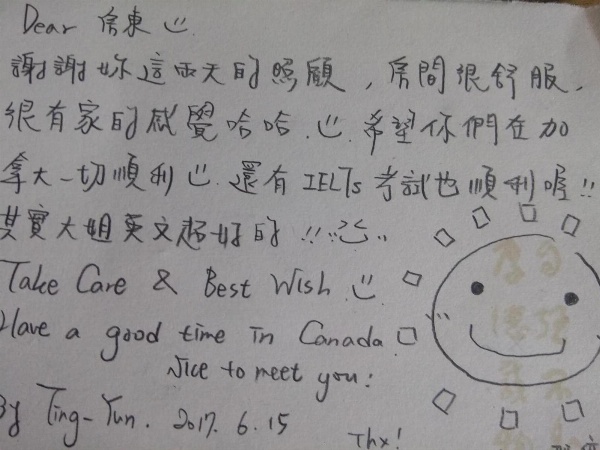 Dear 房東
謝謝妳這兩天的照顧，房間很舒服，
很有家的感覺哈哈. 希望你們在加
拿大一切順利 還有 IELTs 考試也順利喔!!
其實大姐英文超好的!!
Take Care & Best Wish.
Have a good time in Canada.
Nice to meet you!
By Ting-Yun. 2017. 6. 15
Thx!